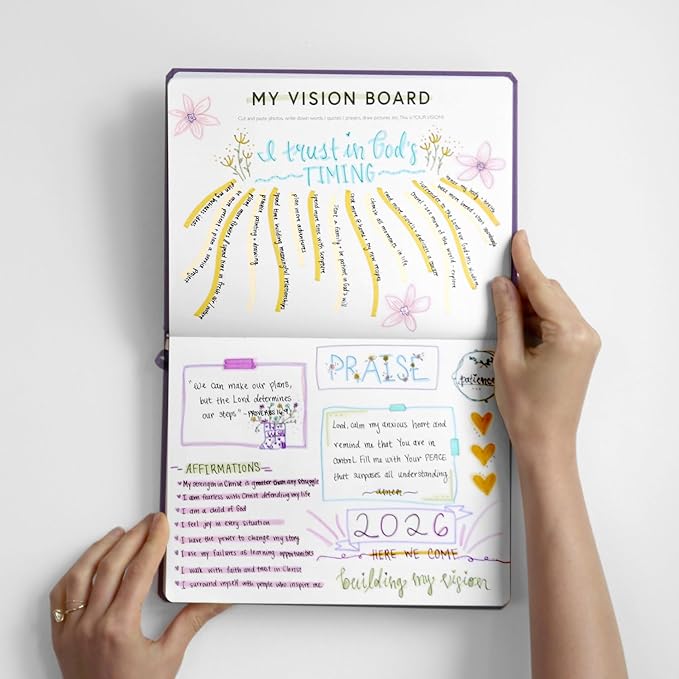 MY VISION BOARD
Cut and paste photos, write down words / quotes / prayers, draw pictures etc. This is YOUR VISION!
I trust in God's
TIMING
plan more adventures
spend more time with scripture
start a family + be patient in God's will
cherish all memories in life
spend time building meaningful relationships
PRAISE
patience
"We can make our plans,
but the Lord determines
our steps" - PROVERBS 16:9
Lord, calm my anxious heart and
remind me that You are in
control. Fill me with Your PEACE
that surpases all understanding
amen
AFFIRMATIONS
My strength in Christ is greater than any struggle
I am fearless with Christ defending my life
I am a child of God
I feel joy in every situation
I have the power to change my story
I use my failures as learning opportunities
I walk with faith and trust in Christ
I surround myself with people who inspire me
2026
HERE WE COME
building my vision